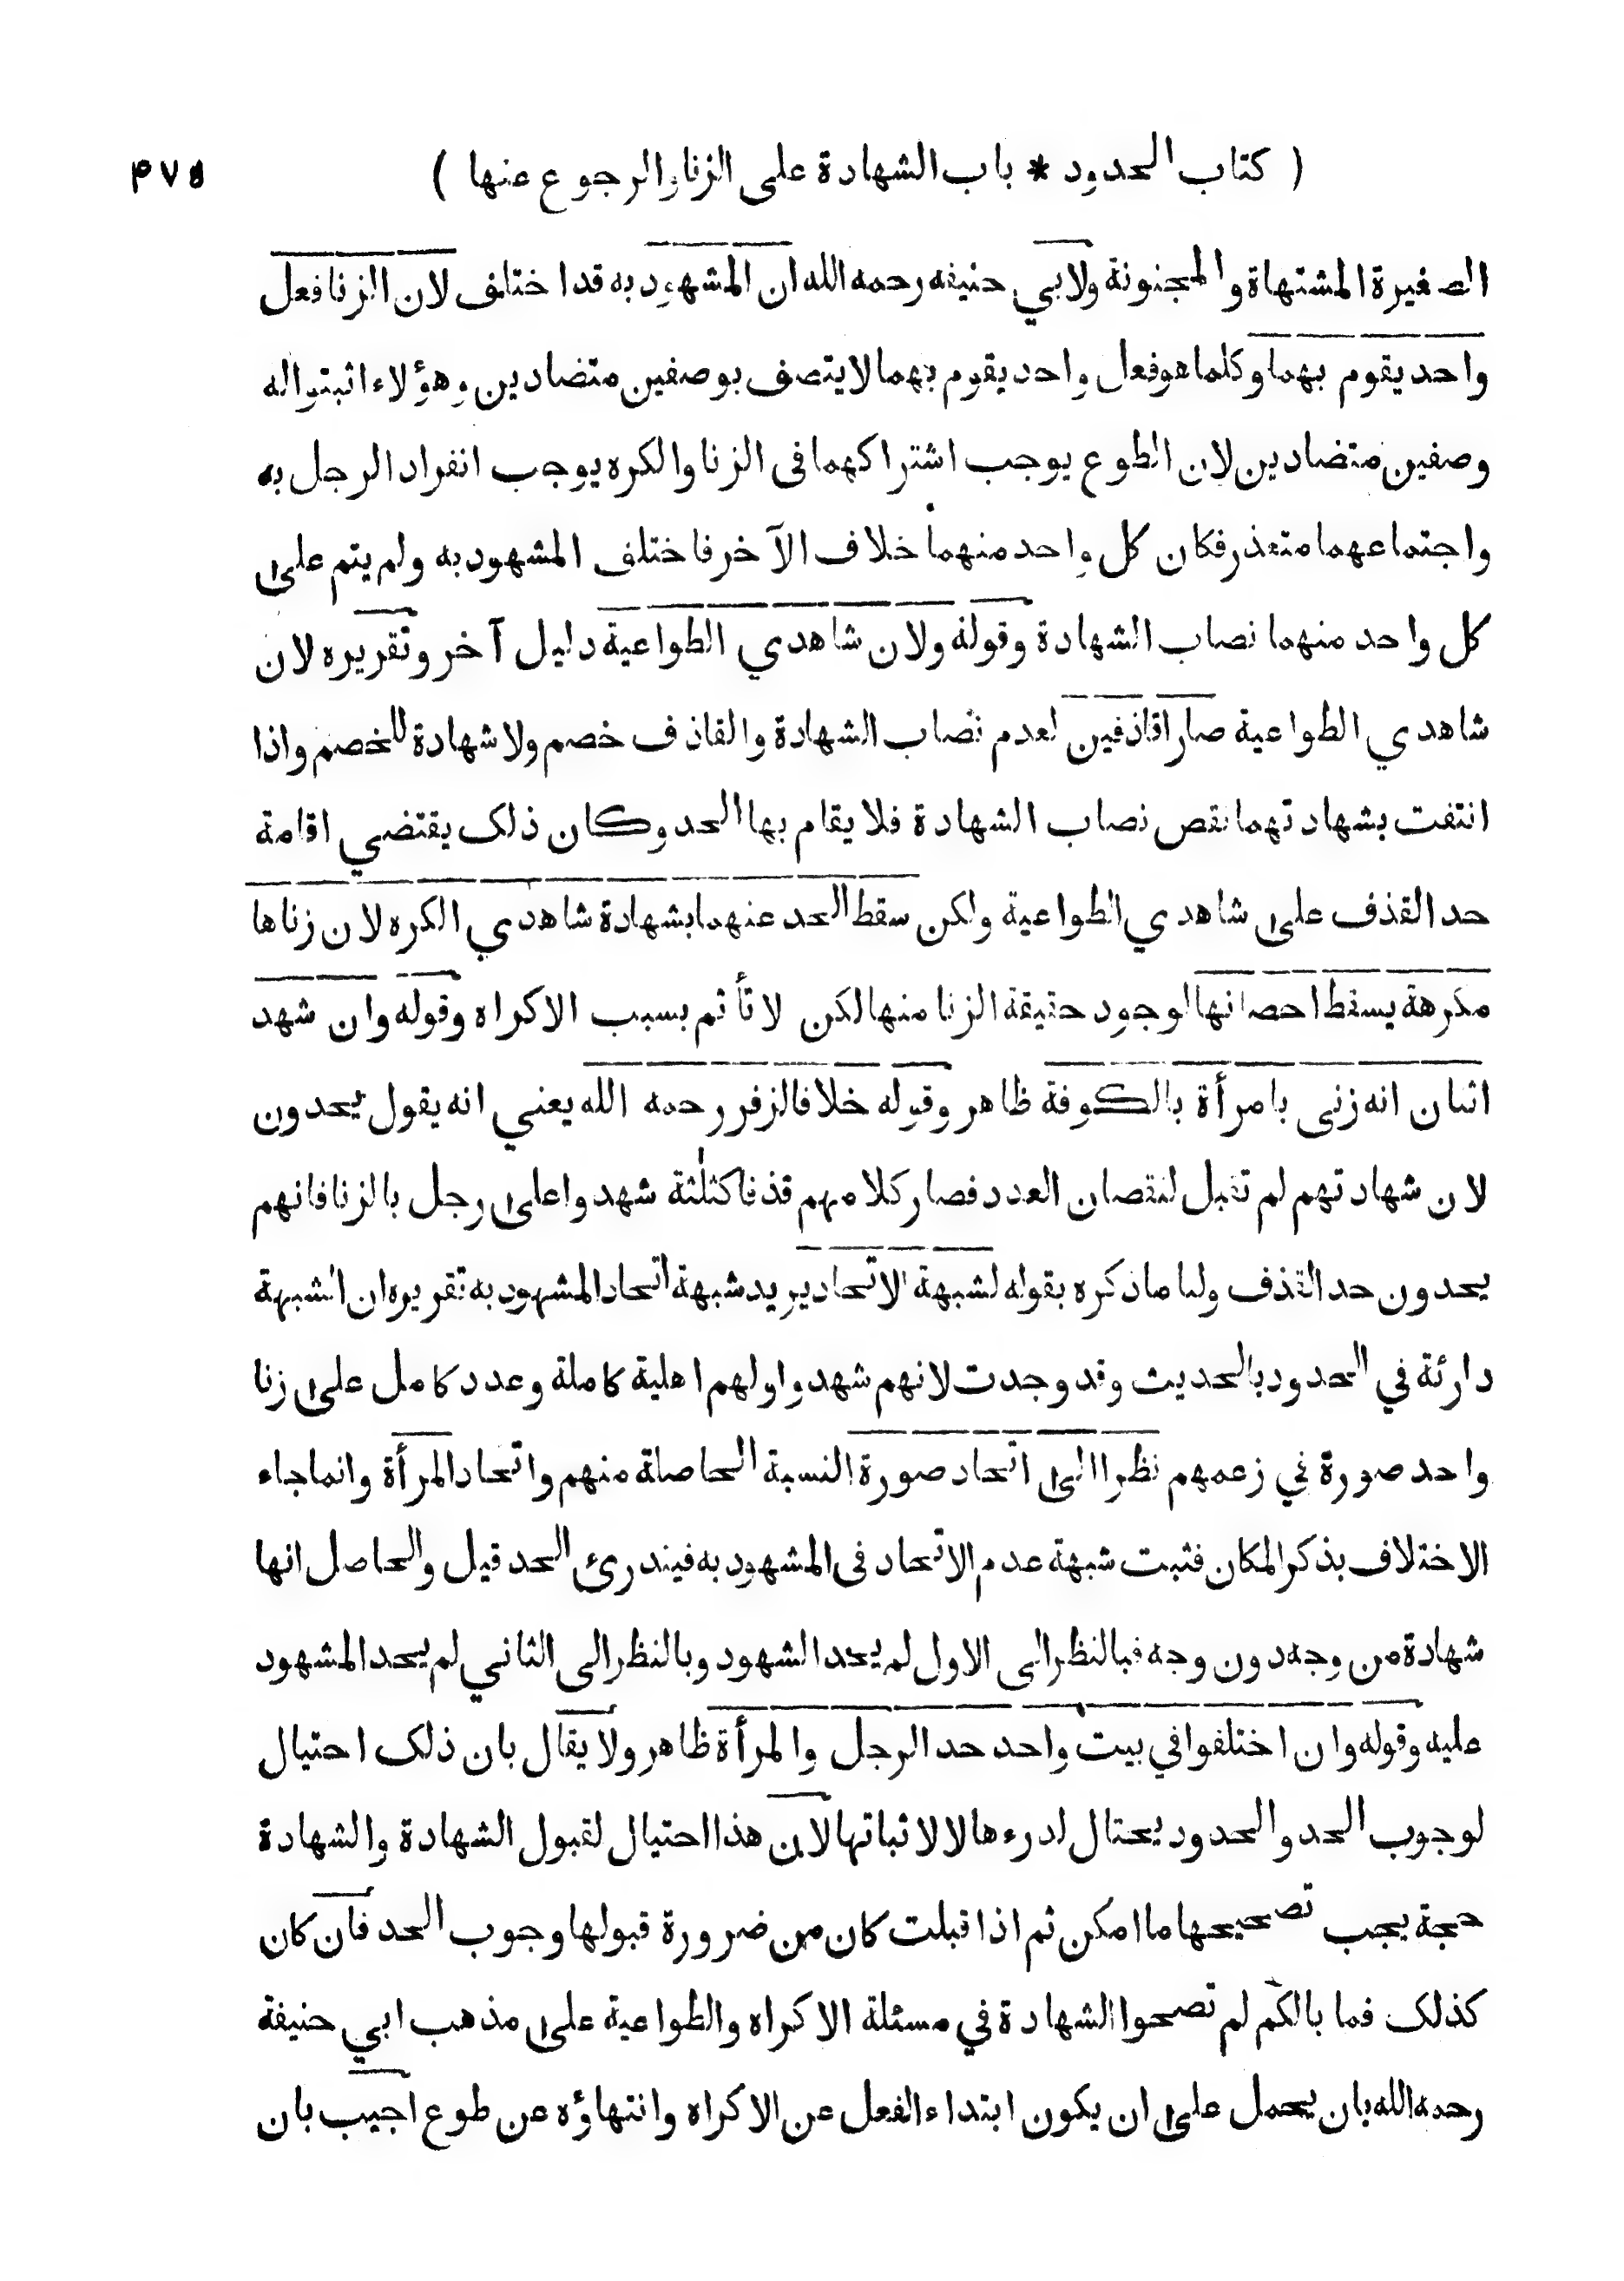 ( كتاب الحدود * باب الشهادة على الزنا والرجوع عنها ) ٤٧٥
الصغيرة المشتهاة والمجنونة ولابي حنيفه رحمه الله ان المشهود به قد اختلف لان الزنا فعل
واحد يقوم بهما وكلما هو فعل واحد يقوم بهما لا يتصف بوصفين متضادين وهؤلاء اثبتوا له
وصفين متضادين لان الطوع يوجب اشتراكهما فى الزنا والكره يوجب انفراد الرجل به
واجتماعهما متعذر فكان كل واحد منهما خلاف الآخر فاختلف المشهود به ولم يتم على
كل واحد منهما نصاب الشهادة وقوله ولان شاهدي الطواعية دليل آخر وتقريره لان
شاهدي الطواعية صارا قاذفين لعدم نصاب الشهادة والقاذف خصم ولا شهادة للخصم واذا
انتفت بشهادتهما نقص نصاب الشهادة فلا يقام بها الحد وكان ذلك يقتضي اقامة
حد القذف على شاهدي الطواعية ولكن سقط الحد عنهما بشهادة شاهدي الكره لان زناها
مكرهة يسقط احصانها لوجود حقيقة الزنا منها لكن لا تأثم بسبب الاكراه وقوله وان شهد
اثنان انه زنى بامرأة بالكوفة ظاهر وقوله خلافا لزفر رحمه الله يعني انه يقول يحدون
لان شهادتهم لم تقبل لنقصان العدد فصار كلامهم قذفا كثلثة شهدوا على رجل بالزنا فانهم
يحدون حد القذف ولنا ما ذكره بقوله لشبهة الاتحاد يريد شبهة اتحاد المشهود به تقريره ان الشبهة
دارئة في الحدود بالحديث وقد وجدت لانهم شهدوا ولهم اهلية كاملة وعدد كامل على زنا
واحد صورة في زعمهم نظرا الى اتحاد صورة النسبة الحاصلة منهم واتحاد المرأة وانما جاء
الاختلاف بذكر المكان فثبت شبهة عدم الاتحاد فى المشهود به فيندرئ الحد قيل والحاصل انها
شهادة من وجه دون وجه فبالنظر الى الاول لم يحد الشهود وبالنظر الى الثاني لم يحد المشهود
عليه وقوله وان اختلفوا في بيت واحد حد الرجل والمرأة ظاهر ولا يقال بان ذلك احتيال
لوجوب الحد والحدود يحتال لدرءها لا لاثباتها لان هذا احتيال لقبول الشهادة والشهادة
حجة يجب تصحيحها ما امكن ثم اذا قبلت كان من ضرورة قبولها وجوب الحد فان كان
كذلك فما بالكم لم تصححوا الشهادة في مسئلة الاكراه والطواعية على مذهب ابي حنيفة
رحمه الله بان يحمل على ان يكون ابتداء الفعل عن الاكراه وانتهاؤه عن طوع اجيب بان